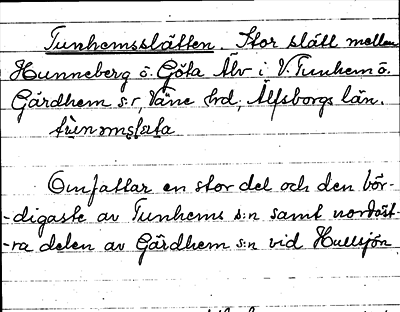 Tunhemsslätten. Stor slätt mellan
Hunneberg o. Göta Älv i V. Tunhem o.
Gärdhem s:r, Väne hrd, Älfsborgs län.
Omfattar en stor del och den bör-
-digaste av Tunhems s:n samt nordöst-
-ra delen av Gärdhem s:n vid Hullsjön